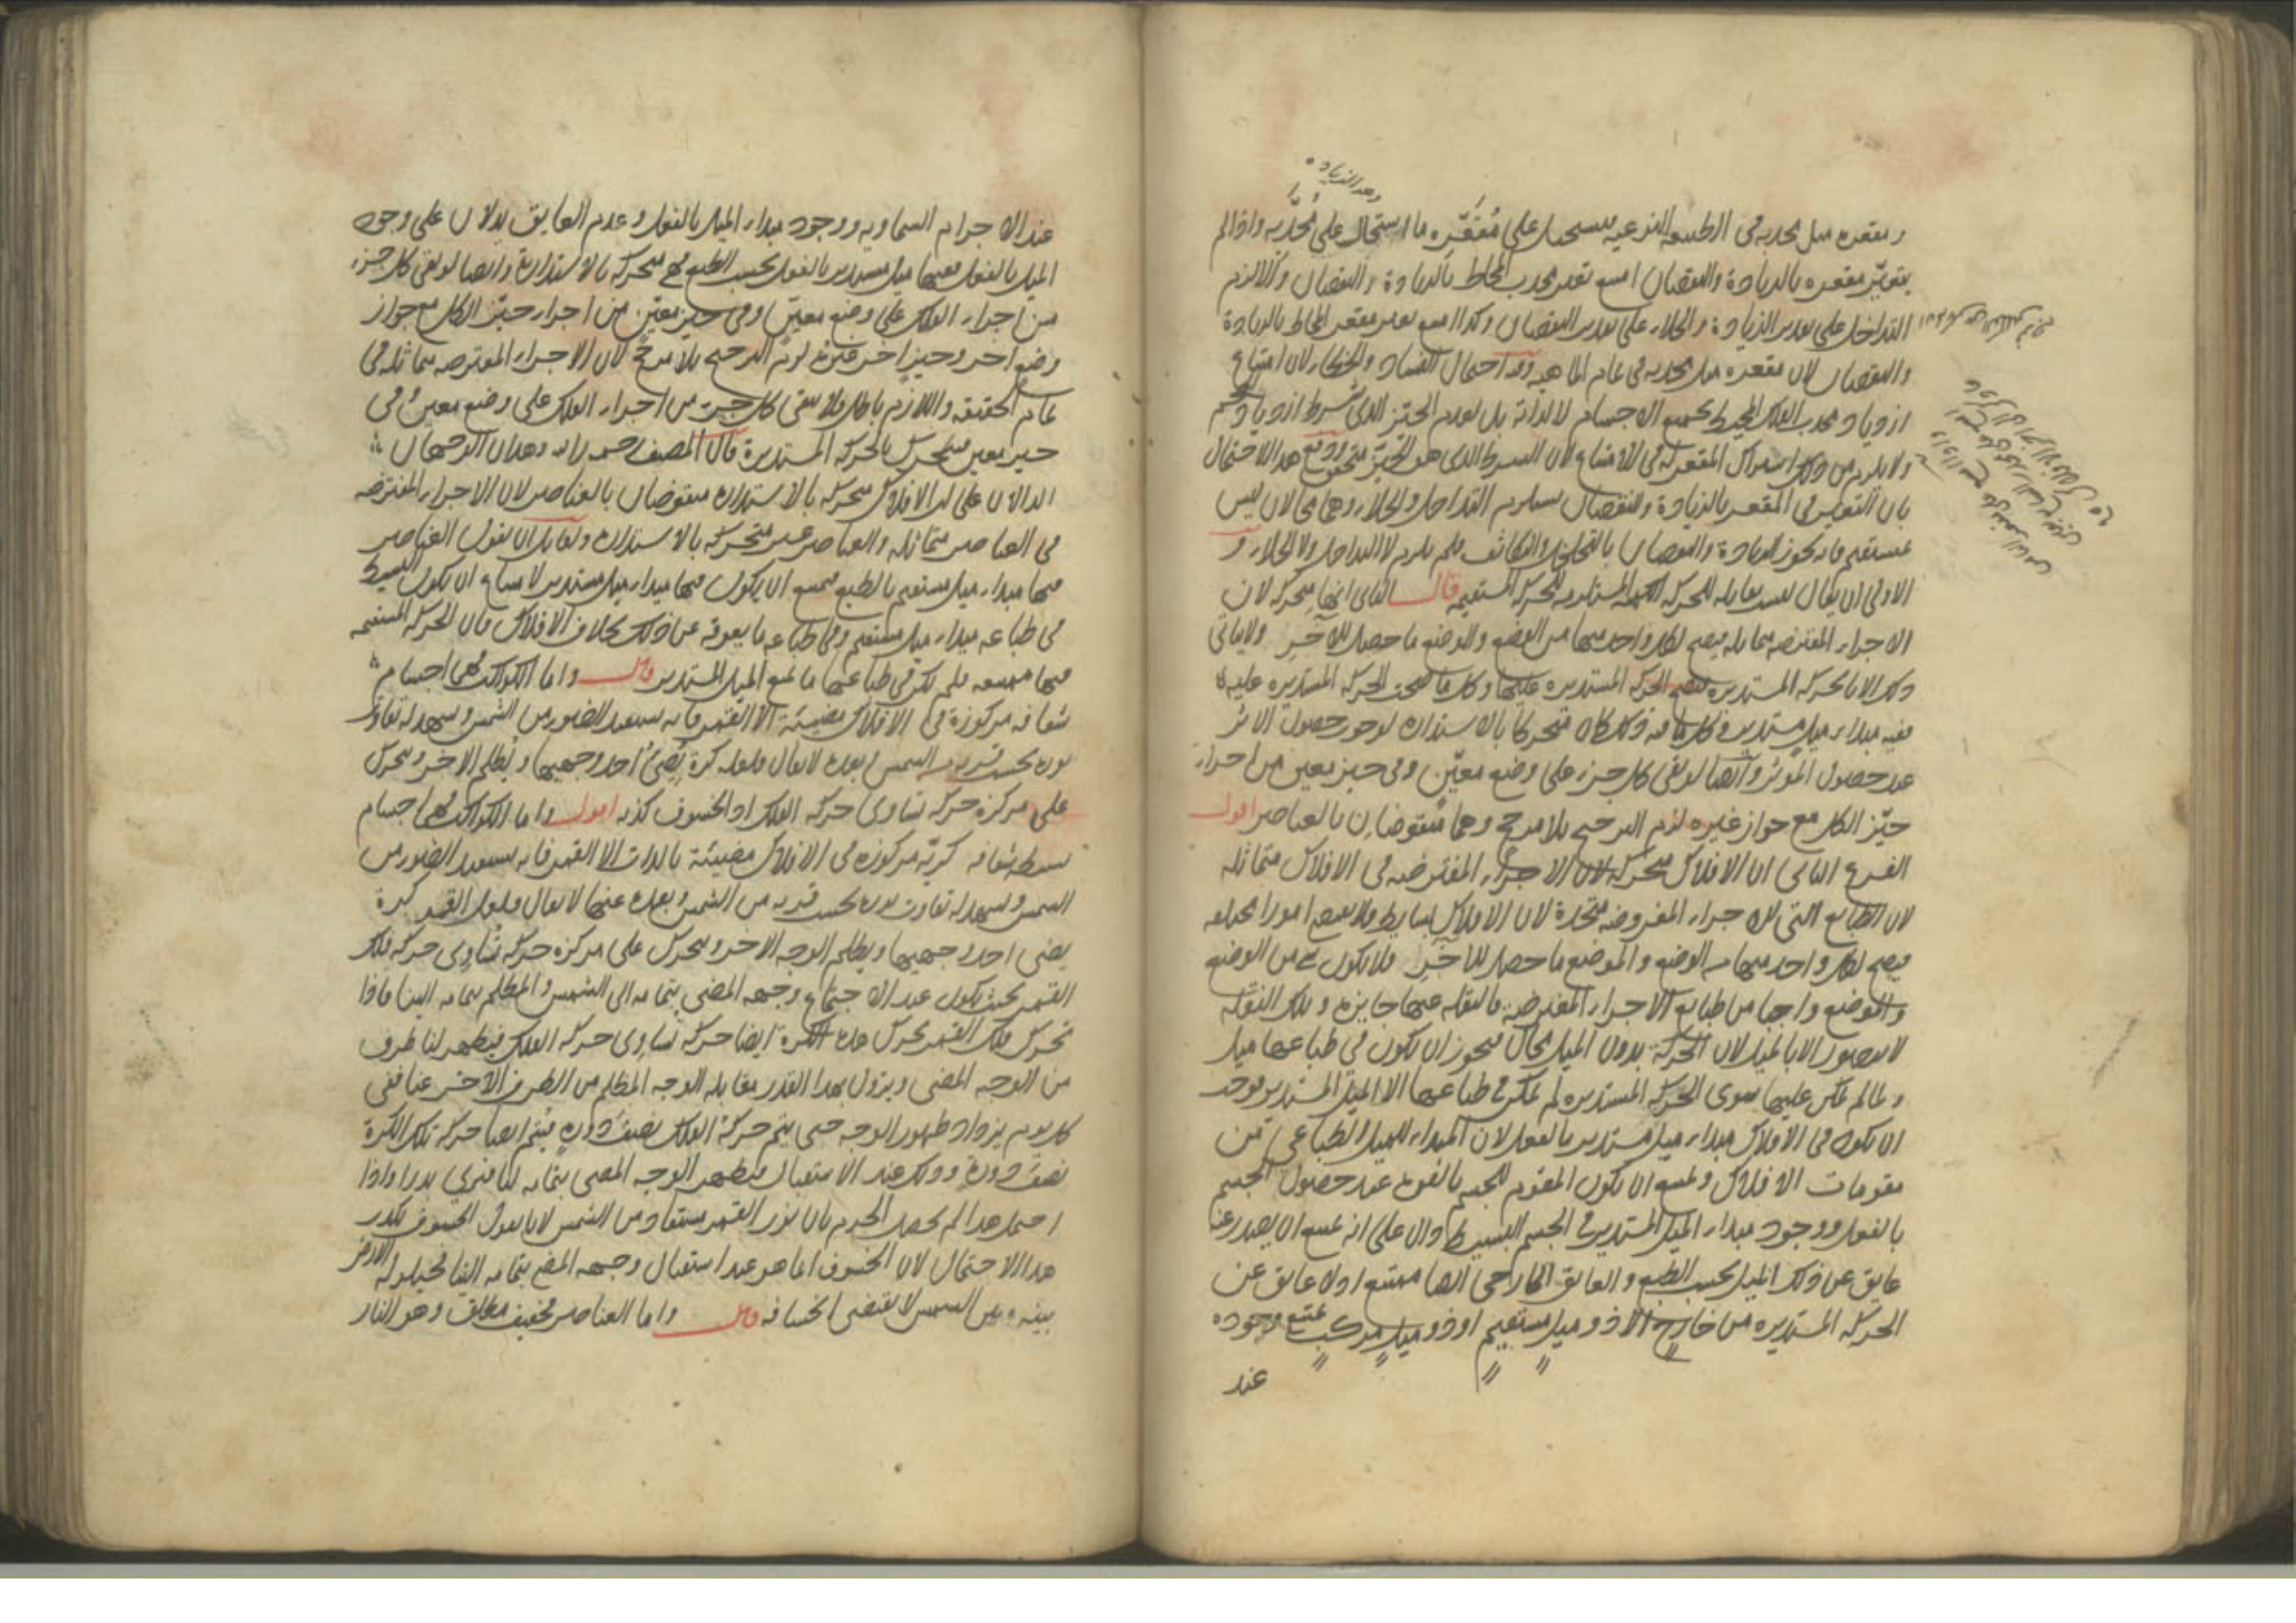 ومقعره مثل محدبه في الطبيعة النوعية فيستحيل على مقعره ما استحال على محدبه واذا لم
يتغير مقعره بالزيادة والنقصان امتنع تغير محدب المحاط بالزيادة والنقصان والا لزم
التداخل على تقدير الزيادة والخلاء على تقدير النقصان وكذا امتنع تغير مقعر المحاط بالزيادة
والنقصان لان مقعره مثل محدبه في تمام الماهية وفيه احتمال الفساد والخطاء لان امتناع
ازدياد محدب الفلك المحيط بجميع الاجسام لا لذاته بل لعدم الحيز الذي شرط ازدياد الجسم
ولا يلزم من ذلك اشتراك المقعر له في الامتناع لان الشرط الذي هو الحيز متحقق ودفع هذا الاحتمال
بان التغير في المقعر بالزيادة والنقصان يستلزم التداخل والخلاء وهما محالان ليس
بمستقيم فانه يجوز الزيادة والنقصان بالتخلخل والتكاثف فلم يلزم لا التداخل ولا الخلاء و
الاولى ان يقال ليست بقابلة للحركة المستقيمة قال الثاني انها متحركة لان
الاجزاء المفترضة متماثلة فيصح لكل واحد منها من الوضع والموضع ما حصل للآخر ولا يتأتى
ذلك الا بالحركة المستديرة فتصح الحركة المستديرة عليها وكل ما صحت الحركة المستديرة عليه
ففيه مبداء ميل مستدير وكل ما فيه ذلك كان متحركا بالاستدارة لوجوب حصول الاثر
عند حصول المؤثر وايضا لو بقي كل جزء على وضع معين وفي حيز معين من اجزاء
حيز الكل مع جواز غيره لزم الترجيح بلا مرجح وهما منقوضان بالعناصر اقول
الفرع الثاني ان الافلاك متحركة لان الاجزاء المفترضة في الافلاك متماثلة
لان الطبايع التي للاجزاء المفروضة متحدة لان الافلاك بسايط فلا تقتضي امورا مختلفة
فيصح لكل واحد منها من الوضع والموضع ما حصل للآخر فلا يكون شيء من الوضع
والموضع واجبا من طبايع الاجزاء المفترضة فالنقلة عنها جايزة وتلك النقلة
لا تتصور الا بالميل لان الحركة بدون الميل محال فيجوز ان يكون في طباعها ميل
ولما لم يمكن عليها سوى الحركة المستديرة لم يمكن في طباعها الا الميل المستدير فوجب
ان يكون في الافلاك مبداء ميل مستدير بالفعل لان المبداء للميل الطباعي من
مقومات الافلاك ويمتنع ان يكون المقوم للجسم بالقوة عند حصول الجسم
بالفعل ووجود مبداء الميل المستدير في الجسم البسيط دال على انه يمتنع ان يصدر عنه
عايق عن ذلك الميل بحسب الطبع والعايق الخارجي ايضا ممتنع اذ لا عايق عن
الحركة المستديرة من خارج الا ذو ميل مستقيم او ذو ميل مركب يمتنع وجوده
عند
عند الاجرام السماوية ووجود مبداء الميل بالفعل وعدم العايق يدلان على وجود
الميل بالفعل ففيها ميل مستدير بالفعل بحسب الطبع فهي متحركة بالاستدارة وايضا لو بقي كل جزء
من اجزاء الفلك على وضع معين وفي حيز معين من اجزاء حيز الكل مع جواز
وضع آخر وحيز آخر غيره لزم الترجيح بلا مرجح لان الاجزاء المفترضة متماثلة في
تمام الحقيقة واللازم باطل فلا يبقى كل جزء من اجزاء الفلك على وضع معين وفي
حيز معين فيتحرك بالحركة المستديرة قال المصنف وهذان الوجهان
الدالان على ان الافلاك متحركة بالاستدارة منقوضان بالعناصر لان الاجزاء المفترضة
في العناصر متماثلة والعناصر غير متحركة بالاستدارة ولقايل ان يقول العناصر
فيها مبداء ميل مستقيم بالطبع فيمتنع ان يكون فيها مبداء ميل مستدير لامتناع ان يكون البسيط
في طباعه مبداء ميل مستقيم وفي طباعه ما يعوقه عن ذلك بخلاف الافلاك فان الحركة المستقيمة
فيها ممتنعة فلم يكن في طباعها ما يمنع الميل المستدير قال واما الكواكب فهي اجسام
شفافة مركوزة في الافلاك مضيئة الا القمر فانه يستفيد الضوء من الشمس ويشهد له تفاوت
نوره بحسب قربه من الشمس وبعده لا يقال فلعله كرة يضيء احد وجهيها ويظلم الآخر ويتحرك
على مركزه حركة تساوي حركة الفلك اذ الخسوف كذبه اقول واما الكواكب فهي اجسام
بسيطة شفافة كرية مركوزة في الافلاك مضيئة بالذات الا القمر فانه يستفيد الضوء من
الشمس ويشهد له تفاوت نوره بحسب قربه من الشمس وبعده عنها لا يقال فلعل القمر كرة
يضيء احد وجهيها ويظلم الوجه الآخر ويتحرك على مركزه حركة تساوي حركة فلك
القمر بحيث يكون عند الاجتماع وجهه المضيء بتمامه الى الشمس والمظلم بتمامه الينا فاذا
تحرك فلك القمر تحرك هذه الكرة ايضا حركة تساوي حركة الفلك فيظهر لنا طرف
من الوجه المضيء ويزول بهذا القدر مقابلة الوجه المظلم من الطرف الآخر عنا ففي
كل يوم يزداد ظهور الوجه حتى يتم حركة الفلك نصف دورة فيتم ايضا حركة تلك الكرة
نصف دورة وذلك عند الاستقبال فيظهر الوجه المضيء بتمامه لنا فنرى بدرا واذا
احتمل هذا لم يحصل الجزم بان نور القمر مستفاد من الشمس لانا نقول الخسوف يكذب
هذا الاحتمال لان الخسوف انما هو عند استقبال وجهه المضيء بتمامه الينا فحيلولة الارض
بينه وبين الشمس لا يقتضي انخسافه قال واما العناصر فخفيف مطلق وهو النار